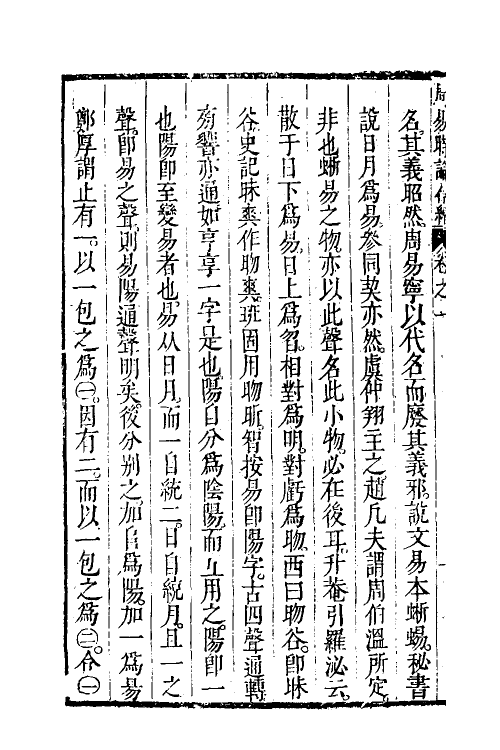 周易時論合編 卷之一
名其義昭然周易寧以代名而廢其義邪說文易本蜥蜴秘書
說日月爲易參同契亦然虞仲翔主之趙凡夫謂周伯溫所定
非也蜥易之物亦以此聲名此小物必在後耳升菴引羅泌云
散于日下爲易日上爲曶相對爲明對虧爲昒西曰昒谷卽昧
谷史記昧爽作昒爽班固用昒昕智按易卽陽字古四聲通轉
旁響亦通如亨享一字是也陽自分爲陰陽而互用之陽卽一
也陽卽至變易者也易从日月而一自統二日自統月且一之
聲卽易之聲則易陽通聲明矣後分別之加𨸏爲陽加一爲昜
鄭厚謂止有一以一包之爲㊀因有二而以一包之爲㊁合㊀